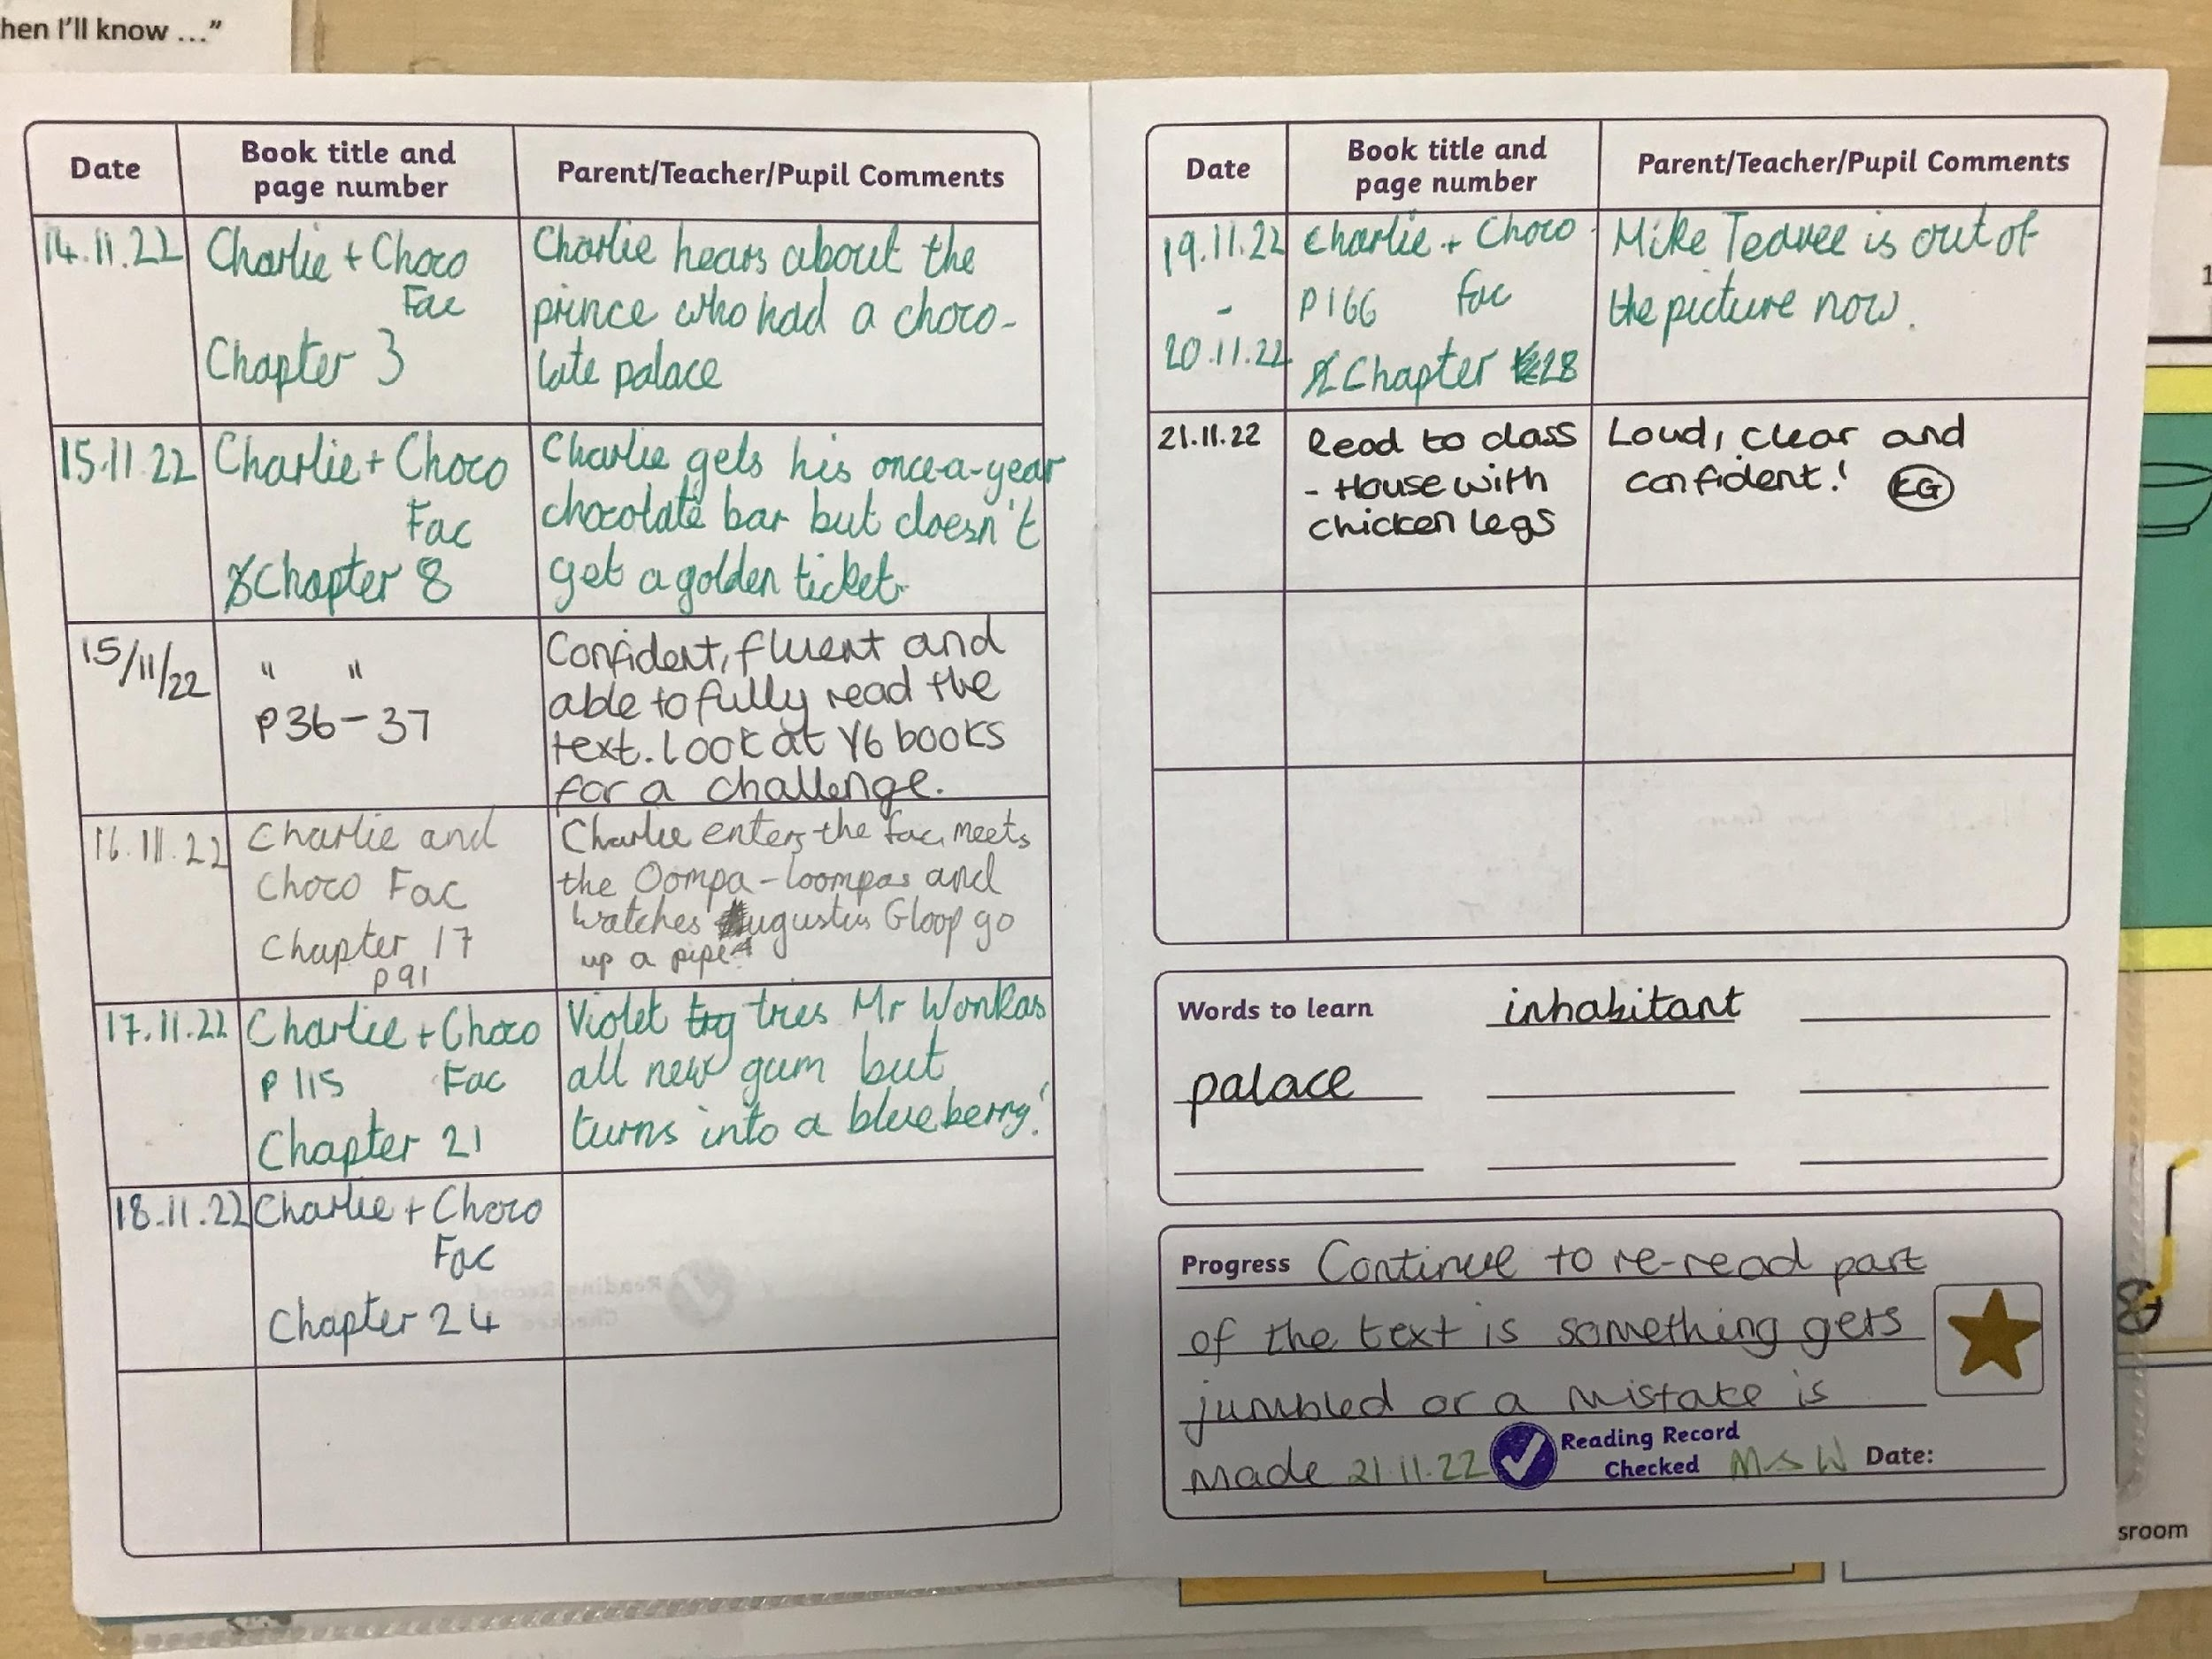 hen I'll know ..."
Date
Book title and
page number
Parent/Teacher/Pupil Comments
14.11.22
Charlie + Choco
Fac
Chapter 3
Charlie hears about the
prince who had a choco-
late palace
15.11.22
Charlie + Choco
Fac
Chapter 8
Charlie gets his once-a-year
chocolate bar but doesn't
get a golden ticket.
15/11/22
" "
P36-37
Confident, fluent and
able to fully read the
text. Look at Y6 books
for a challenge.
16.11.22
Charlie and
Choco Fac
Chapter 17
p91
Charlie enters the fac, meets
the Oompa-loompas and
watches Augustus Gloop go
up a pipe
17.11.22
Charlie + Choco
P 115 Fac
Chapter 21
Violet try tries Mr Wonkas
all new gum but
turns into a blueberry!
18.11.22
Charlie + Choco
Fac
Chapter 24
Reading Record
Checked
Date
Book title and
page number
Parent/Teacher/Pupil Comments
19.11.22
-
20.11.22
Charlie + Choco
P166 Fac
Chapter 28
Mike Teavee is out of
the picture now.
21.11.22
Read to class
- House with
chicken legs
Loud, clear and
confident! EG
Words to learn inhabitant
palace
Progress Continue to re-read part
of the text is something gets
jumbled or a mistake is
made 21.11.22 Reading Record
Checked MSW Date:
sroom
1